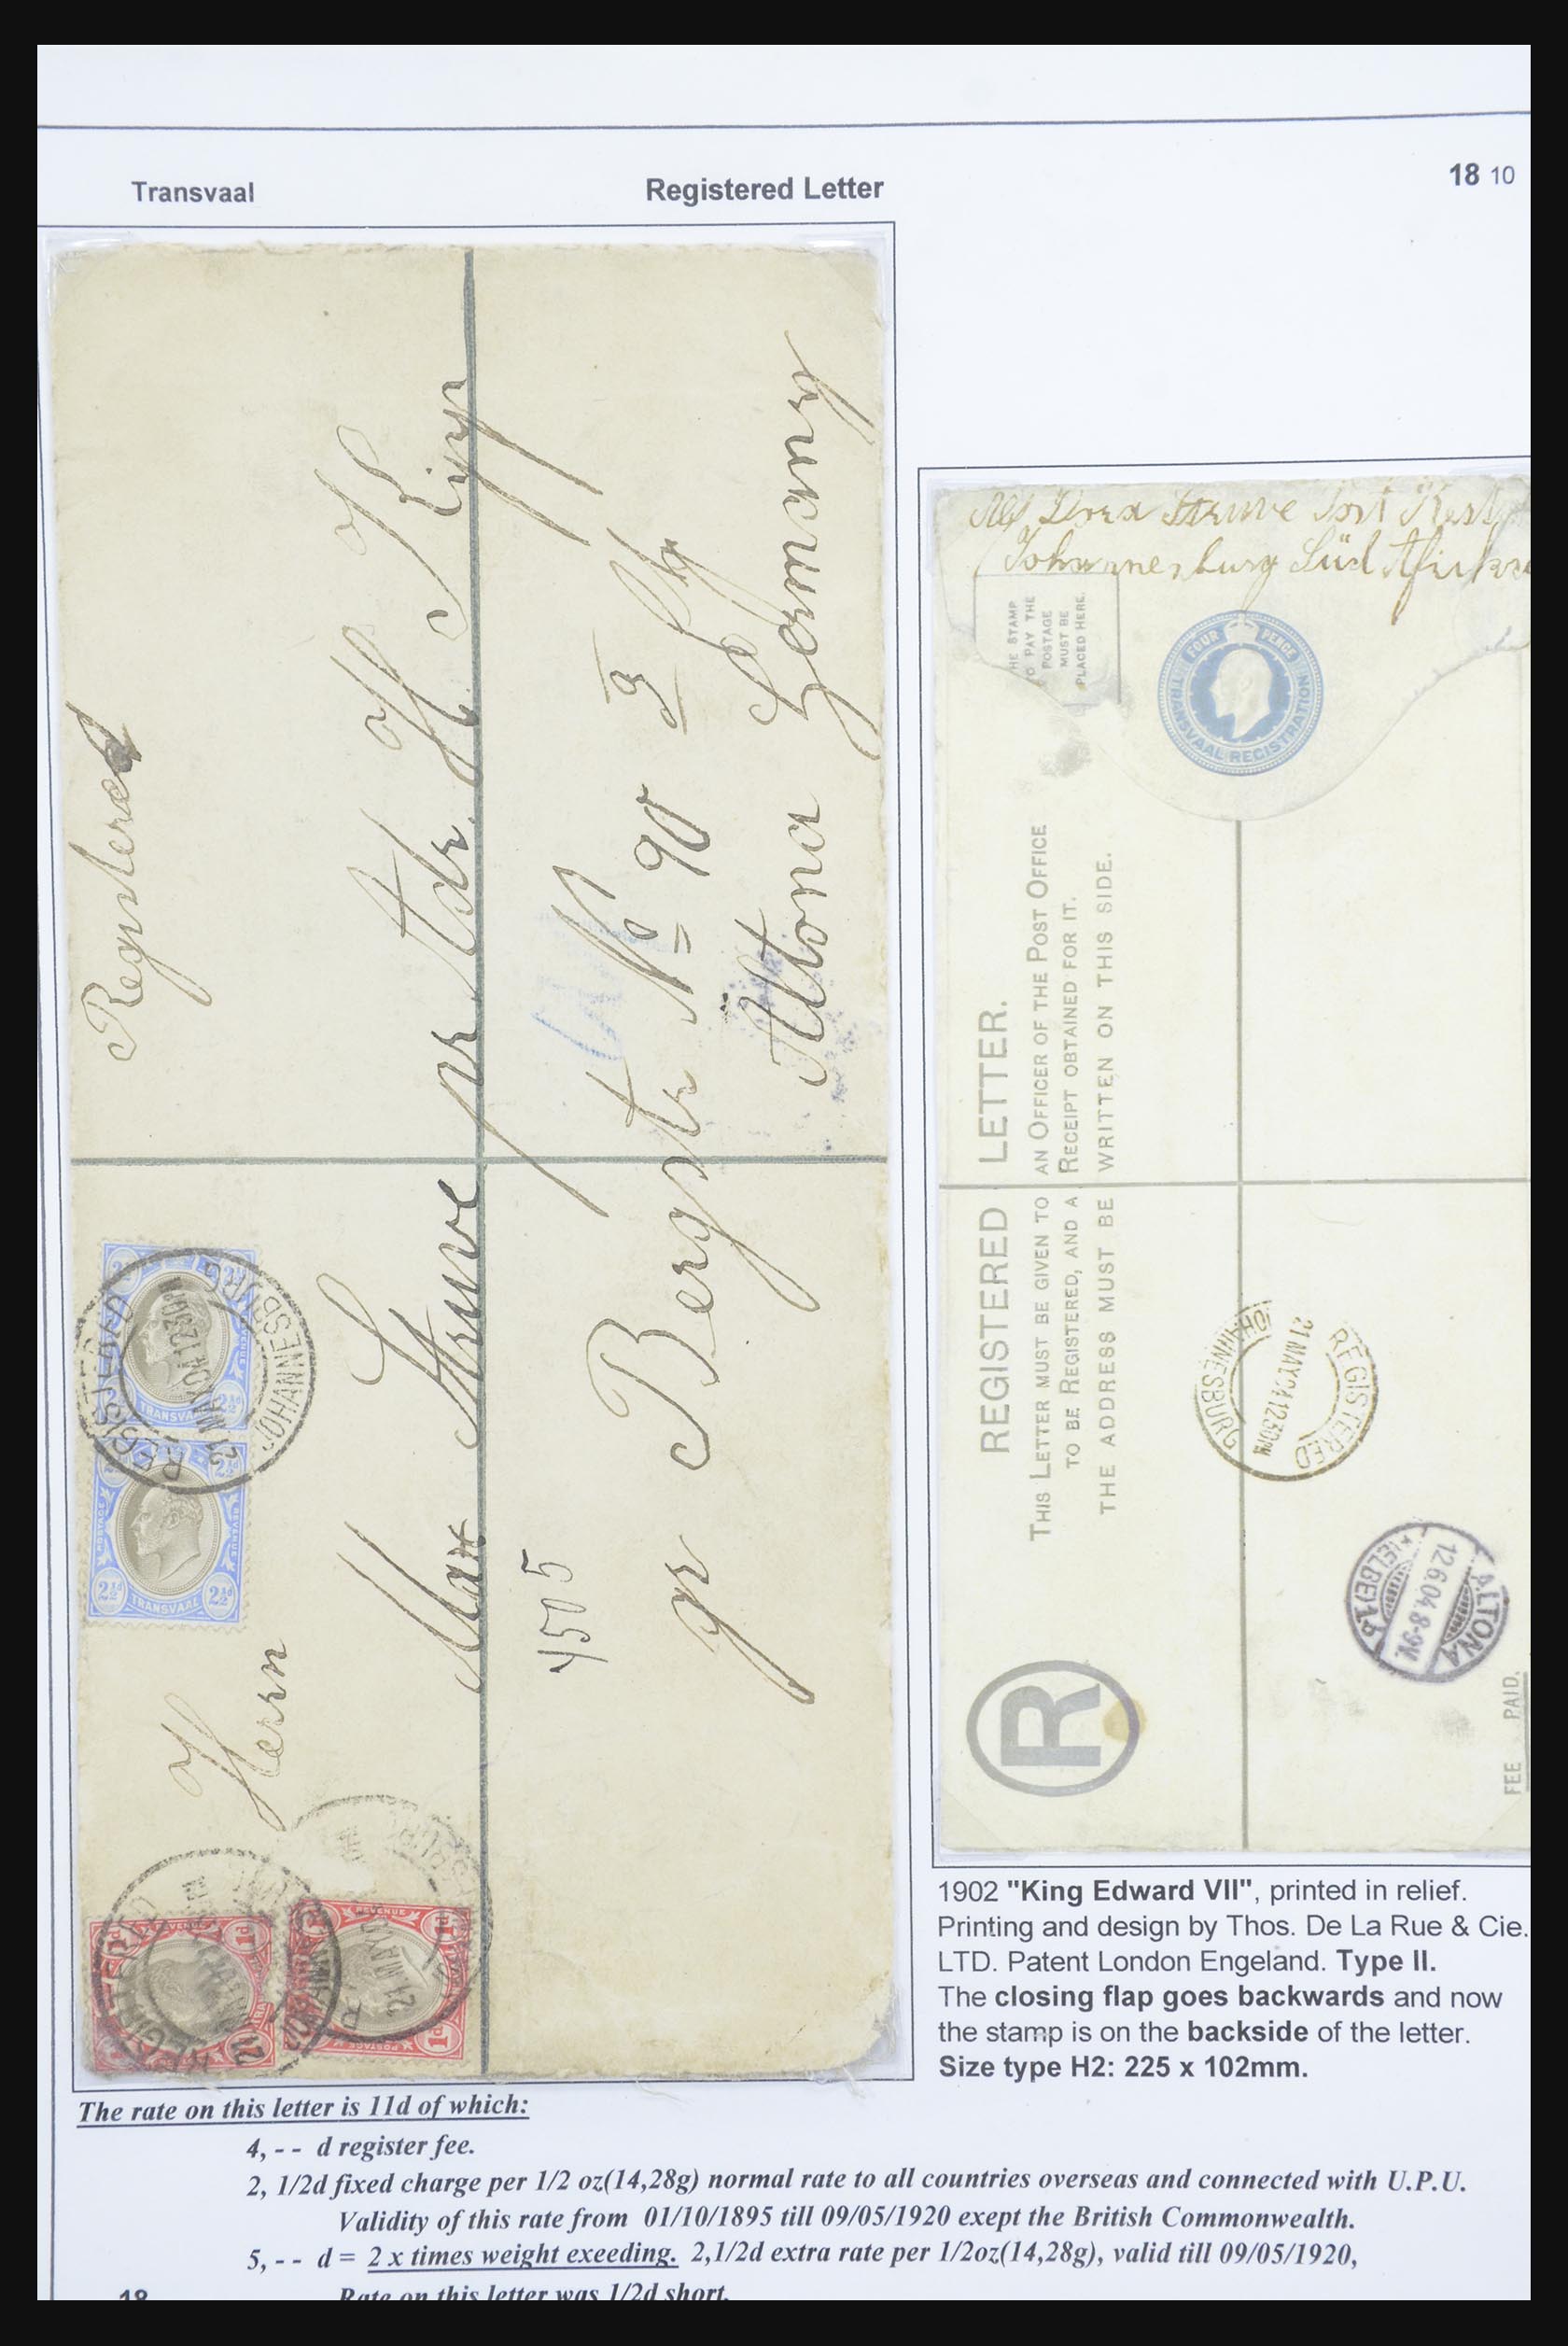 Transvaal
Registered Letter
18 10
Registered
Herrn
Max Struve pr Adr. H. H. Kipp
gr Bergstr No 90
Altona Germany
4505
2½d 2½d
REVENUE
TRANSVAAL
REGISTERED JOHANNESBURG
21 MAY 04 12 30 PM
POSTAGE REVENUE
2½d 2½d
TRANSVAAL
REVENUE
1d
REGISTERED
REVENUE
1d
21 MAY
POSTAGE
Dora Struve
Johannesburg Süd Afrika
HE STAMP
TO PAY THE
POSTAGE
MUST BE
PLACED HERE.
FOUR PENCE
TRANSVAAL REGISTRATION
REGISTERED LETTER.
THIS LETTER MUST BE GIVEN TO AN OFFICER OF THE POST OFFICE
TO BE REGISTERED, AND A RECEIPT OBTAINED FOR IT.
THE ADDRESS MUST BE WRITTEN ON THIS SIDE.
R
REGISTERED JOHANNESBURG
21 MAY 04 12 30 PM
ALTONA
12.6.04.8-9V.
(ELBE) 1b
FEE PAID.
1902 "King Edward VII", printed in relief.
Printing and design by Thos. De La Rue & Cie.
LTD. Patent London Engeland. Type II.
The closing flap goes backwards and now
the stamp is on the backside of the letter.
Size type H2: 225 x 102mm.
The rate on this letter is 11d of which:
4, - - d register fee.
2, 1/2d fixed charge per 1/2 oz(14,28g) normal rate to all countries overseas and connected with U.P.U.
Validity of this rate from 01/10/1895 till 09/05/1920 exept the British Commonwealth.
5, - - d = 2 x times weight exeeding. 2,1/2d extra rate per 1/2oz(14,28g), valid till 09/05/1920,
Rate on this letter was 1/2d short.
18